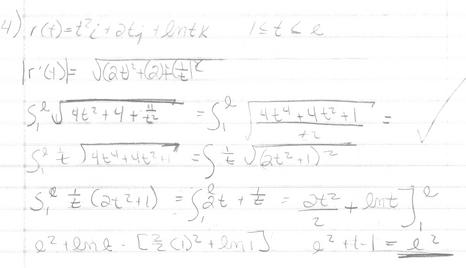 4) r(t)=t²i+2tj+lntk 1≤t≤e
|r'(t)|= √(2t)²+(2)²+(1/t)²
∫₁ᵉ √4t²+4+1/t² = ∫₁ᵉ √(4t⁴+4t²+1)/t² =
∫₁ᵉ 1/t √4t⁴+4t²+1 = ∫ 1/t √(2t²+1)²
∫₁ᵉ 1/t (2t²+1) = ∫₁ᵉ 2t + 1/t = 2t²/2 + lnt]₁ᵉ
e²+lne - [2/2(1)²+ln1] e²+1-1 = e²